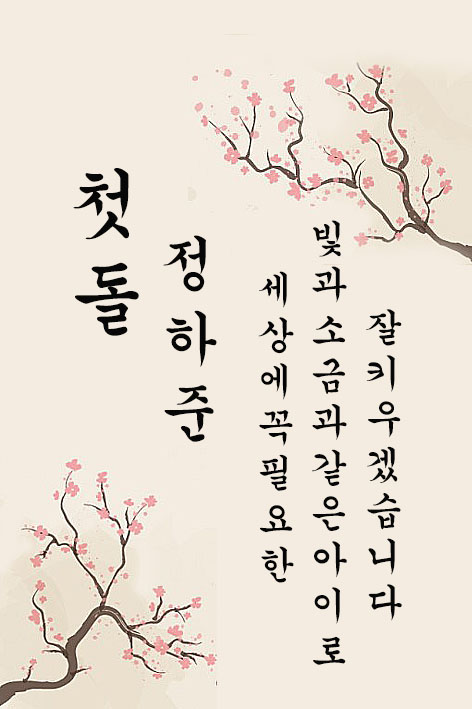 첫돌
정하준
세상에꼭필요한
빛과소금과같은아이로
잘키우겠습니다